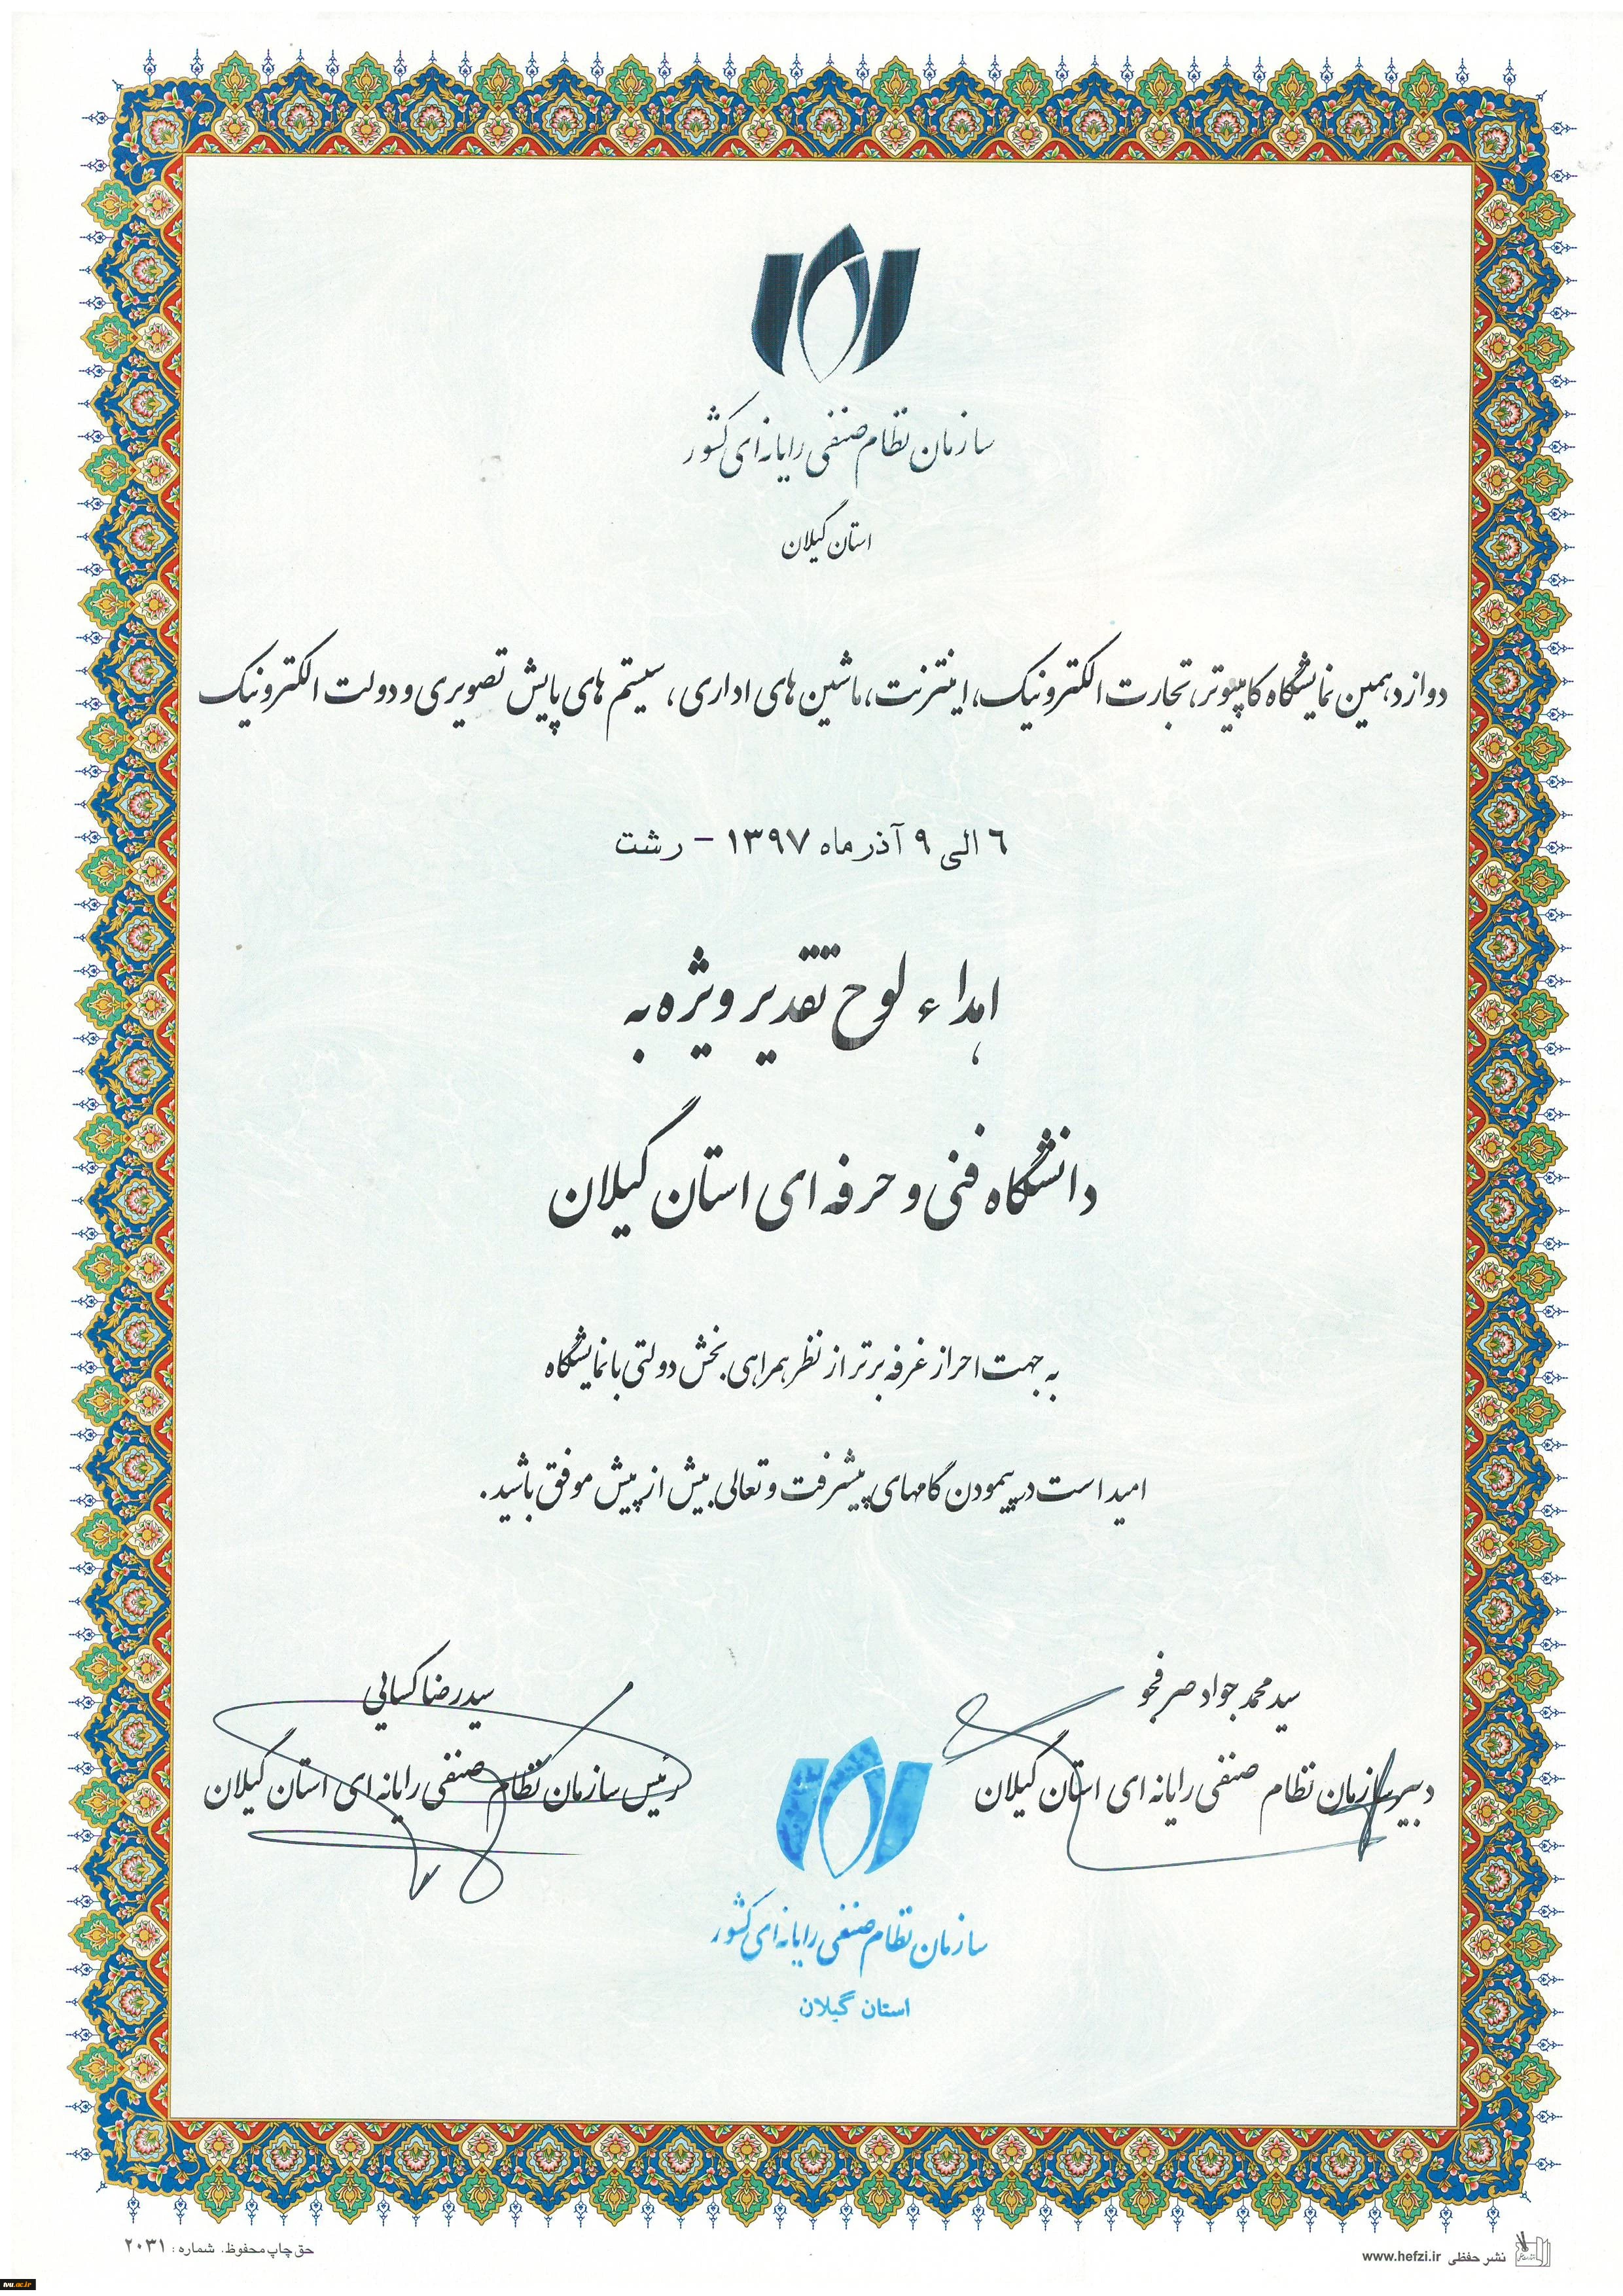 سازمان نظام صنفی رایانه ای کشور
استان گیلان
دوازدهمین نمایشگاه کامپیوتر، تجارت الکترونیک، اینترنت، ماشین های اداری، سیستم های پایش تصویری و دولت الکترونیک
۶ الی ۹ آذر ماه ۱۳۹۷ - رشت
اهداء لوح تقدیر ویژه به
دانشگاه فنی و حرفه ای استان گیلان
به جهت احراز غرفه برتر از نظر همراهی بخش دولتی با نمایشگاه
امید است در پیمودن گامهای پیشرفت و تعالی بیش از پیش موفق باشید.
سید محمد جواد صرفجو
دبیر سازمان نظام صنفی رایانه ای استان گیلان
سید رضا کسایی
رئیس سازمان نظام صنفی رایانه ای استان گیلان
سازمان نظام صنفی رایانه ای کشور
استان گیلان
نشر حفظی www.hefzi.ir
حق چاپ محفوظ. شماره: ۲۰۳۱
tvu.ac.ir